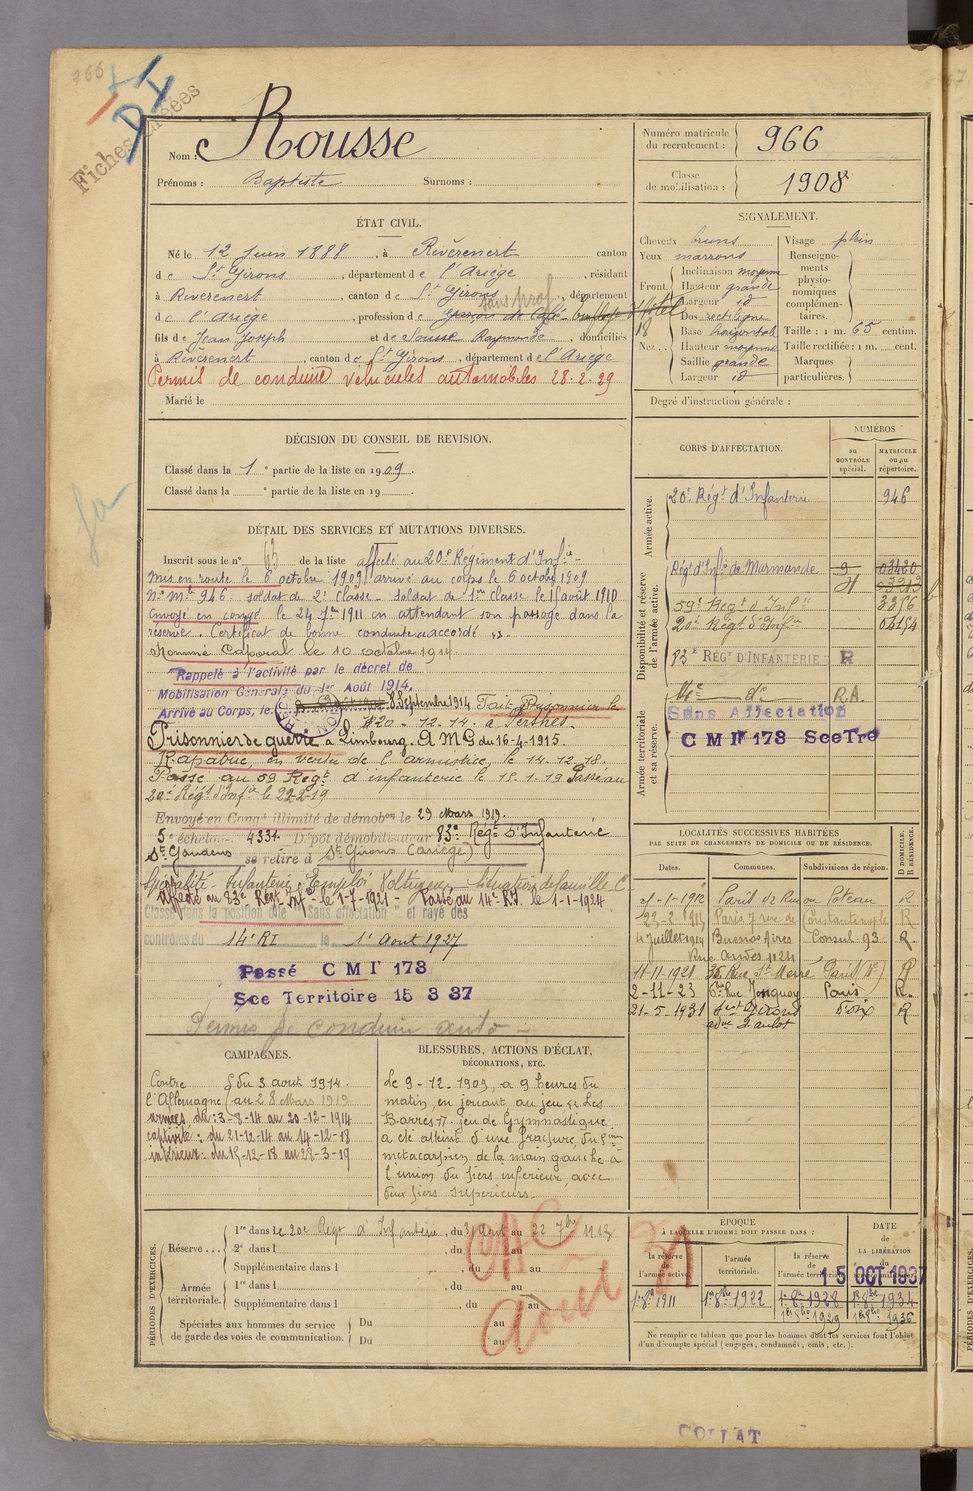 966
Fiches créées
Nom : Rousse
Prénoms : Baptiste Surnoms :
Numéro matricule du recrutement : 966
Classe de mobilisation : 1908
ÉTAT CIVIL.
Né le 12 Juin 1888, à Rivèrenert canton
de St Girons, département de l'Ariège, résidant
à Rivèrenert, canton de St Girons, département
sans prof
de l'Ariège, profession de garçon de Café - Employé d'Hôtel
fils de Jean Joseph et de Sousse Raymonde, domiciliés
à Rivèrenert, canton de St Girons, département de l'Ariège
Permis de conduire véhicules automobiles 28-2-29
Marié le
SIGNALEMENT.
Cheveux bruns
Yeux marrons
Front. Inclinaison moyenne
Hauteur grande
Largeur id
Nez. Dos rectiligne
Base horizontale
Hauteur moyenne
Saillie grande
Largeur id
Visage plein
Renseignements physionomiques complémentaires.
Taille : 1 m. 65 centim.
Taille rectifiée : 1 m. cent.
Marques particulières.
Degré d'instruction générale :
DÉCISION DU CONSEIL DE REVISION.
Classé dans la 1e partie de la liste en 1909.
Classé dans la e partie de la liste en 19 .
CORPS D'AFFECTATION.
NUMÉROS
au CONTRÔLE spécial.
MATRICULE ou au répertoire.
Armée active.
20e Régt d'Infanterie 946
Disponibilité et réserve de l'armée active.
Régt d'Infie de Marmande
59e Régt d'Infie 3356
20e Régt d'Infie 04154
83e RÉGt D'INFANTERIE R
Armée territoriale et sa réserve.
14e de R.A.
Sans Affectation
C M I 173 Sce Tre
DÉTAIL DES SERVICES ET MUTATIONS DIVERSES.
Inscrit sous le n° 63 de la liste affecté au 20e Régiment d'Infie -
Mis en route le 6 octobre 1909, arrivé au corps le 6 octobre 1909
No Mle 946. soldat de 2e classe. soldat de 1re classe le 1er août 1910
Envoyé en congé le 24 7bre 1911 en attendant son passage dans la
réserve. Certificat de bonne conduite accordé
Nommé Caporal le 10 octobre 1914
Rappelé à l'activité par le décret de
Mobilisation Générale du 1er Août 1914.
Arrivé au Corps, le 8 Septembre 1914 Fait Prisonnier le
20-12-14 à Perthes.
Prisonnier de guerre à Limbourg. A M G du 16-4-1915.
Rapatrié en vertu de l'armistice, le 14-12-18.
Passé au 59 Régt d'infanterie le 15-1-19 Passé au
20e Régt d'Infie le 22-2-19
Envoyé en Congé illimité de démobon le 29 Mars 1919.
5e échelon 4331. Dépôt démobilisateur 83e Régt d'Infanterie
St Gaudens se retire à St Girons (Ariège)
Spécialité - Infanterie, Emploi Voltigeur, Situation de famille C
Affecté au 83e Régt Infie le 1-7-1921 - Passé au 14e R.I. le 1-1-1924
Classé dans la position dite "Sans affectation" et rayé des
contrôles du 14e RI le 1er Aout 1927
Passé C M I 173
Sce Territoire 15 3 37
Permis de conduire auto -
LOCALITÉS SUCCESSIVES HABITÉES
PAR SUITE DE CHANGEMENTS DE DOMICILE OU DE RÉSIDENCE.
Dates. Communes. Subdivisions de région. D DOMICILE. R RÉSIDENCE.
22-2 1913 Paris 7 rue de Constantinople R
4 Juillet 1914 Buenos Aires Consul 93 R.
Rue Andes 1024
11-11-1921 35 Rue St Merri Paris (4e) R
2-11-23 Rue Jonquoy Paris R.
21-5-1931 St Girons Foix R
CAMPAGNES.
Contre l'Allemagne du 3 aout 1914. au 28 Mars 1919.
armées du : 3-8-14 au 20-12-1914
captivité : du 21-12-14 au 14-12-18
intérieur : du 15-12-18 au 28-3-19
BLESSURES, ACTIONS D'ÉCLAT,
DÉCORATIONS, ETC.
Le 9-12-1909, a 9 heures du
matin, en jouant au jeu "Les
Barres", jeu de Gymnastique
a été atteint d'une fracture du 5ième
metacarpien de la main gauche à
l'union du tiers inférieur, avec
deux tiers supérieurs.
PÉRIODES D'EXERCICES.
Réserve... 1re dans le 20e Régt d'Infanterie, du 31 Aout au 22 7bre 1913
2e dans l , du au
Supplémentaire dans l , du au
Armée territoriale. 1re dans l , du au
Supplémentaire dans l , du au
Spéciales aux hommes du service de garde des voies de communication. Du au
Du au
Août
ÉPOQUE
À LAQUELLE L'HOMME DOIT PASSER DANS :
la réserve de l'armée active.
l'armée territoriale.
la réserve de l'armée territoriale.
DATE de LA LIBÉRATION du
15 OCT 1937
1er 8bre 1911 1er 8bre 1922 1er 8bre 1928 1er 8bre 1934
1er 8bre 1929 1er 8bre 1936
Ne remplir ce tableau que pour les hommes dont les services font l'objet
d'un décompte spécial (engagés, condamnés, omis, etc.).
COLLAT